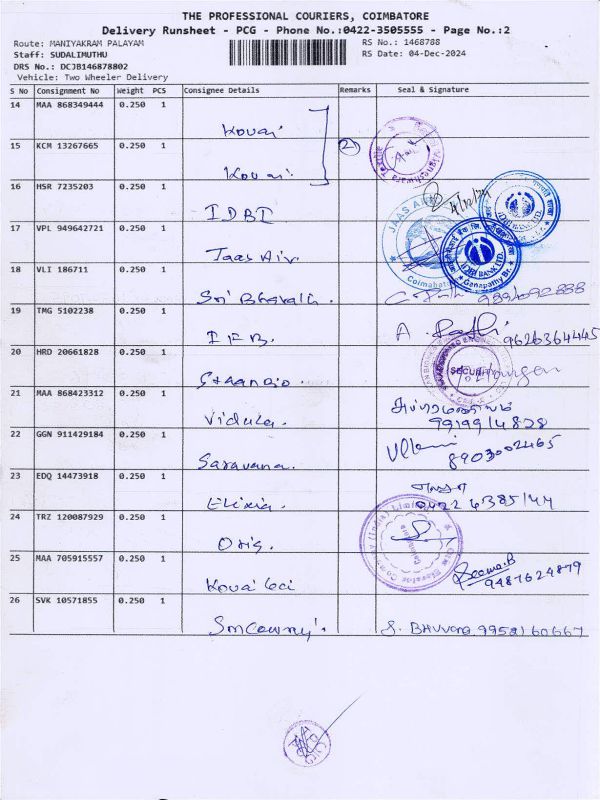 THE PROFESSIONAL COURIERS, COIMBATORE
Delivery Runsheet - PCG - Phone No.:0422-3505555 - Page No.:2
Route: MANIYAKRAM PALAYAM
RS No.: 1468788
Staff: SUDALIMUTHU
RS Date: 04-Dec-2024
DRS No.: DCJB146878802
Vehicle: Two Wheeler Delivery
S No Consignment No Weight PCS Consignee Details Remarks Seal & Signature
14 MAA 868349444 0.250 1 Kovai
15 KCM 13267665 0.250 1 Kovai 2
16 HSR 7235203 0.250 1 IDBI 4/12/24
IDBI BANK LTD.
Ganapathy Br.
17 VPL 949642721 0.250 1 Jaas Air
JAAS AIR
Coimbatore
18 VLI 186711 0.250 1 Sri Bharath.
19 TMG 5102238 0.250 1 I F B. 9626364445
20 HRD 20661828 0.250 1
SECURITY
21 MAA 868423312 0.250 1 Vidula. சுப்ரமணியம்
9199914828
22 GGN 911429184 0.250 1 Saravana. 8903002465
23 EDQ 14473918 0.250 1 0422 4385144
24 TRZ 120087929 0.250 1 Otis.
Otis Elevator Company (India) Limited
Coimbatore
25 MAA 705915557 0.250 1 Seema.B
9487624879
26 SVK 10571855 0.250 1 S. BHUVANA 9952160667